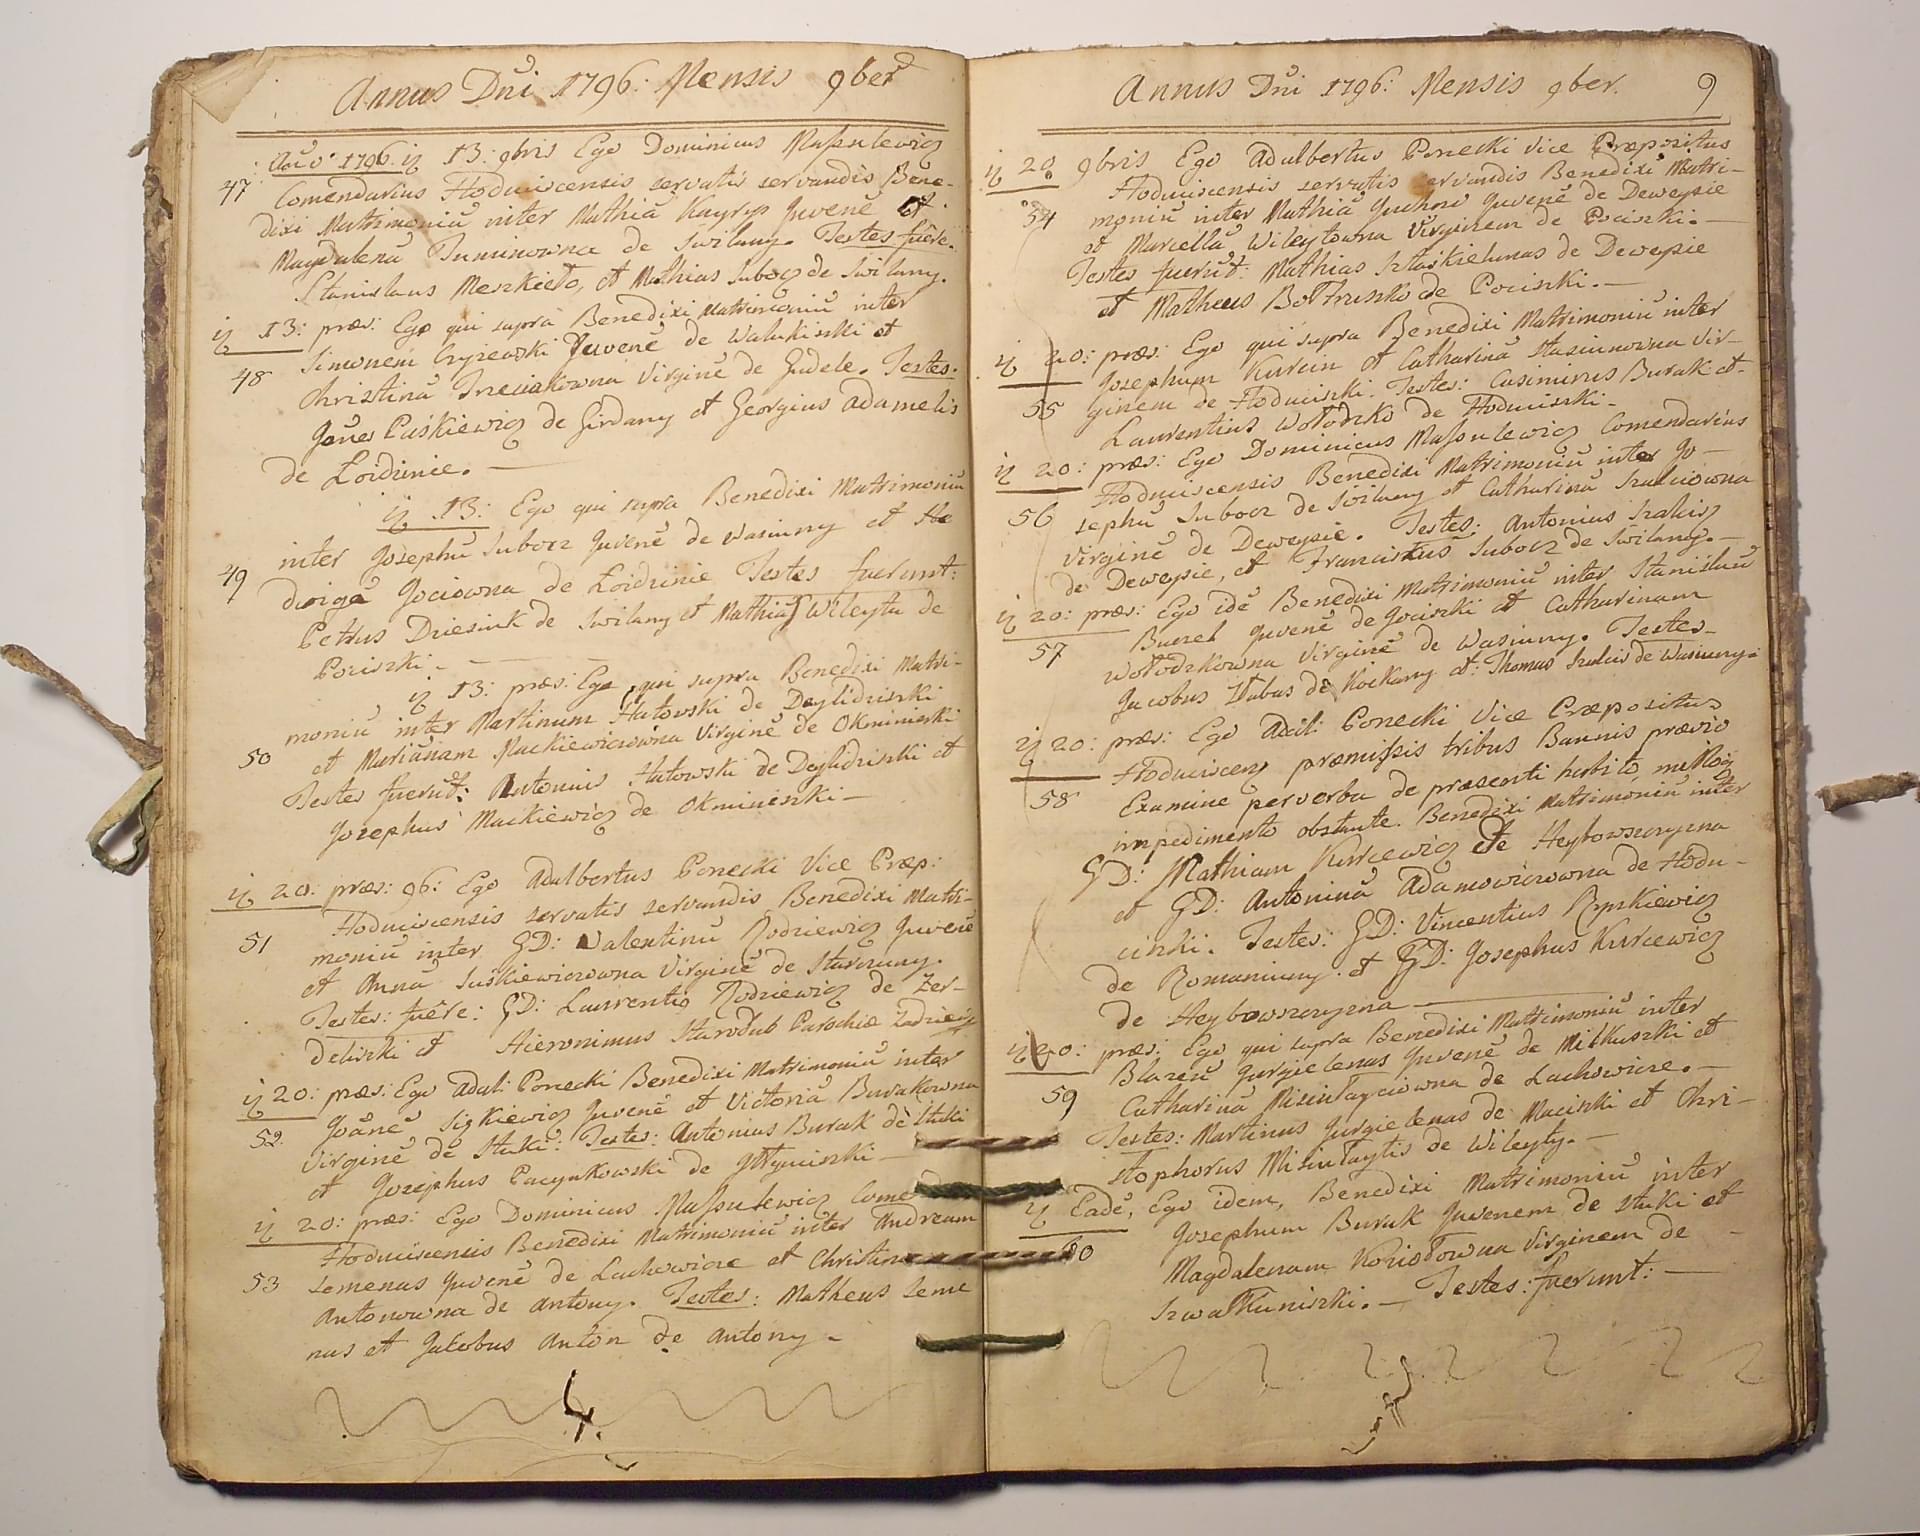 Annus Dni 1796: Mensis 9ber
Año 1796. 13: 9bris Ego Dominicus Massulewicz
47 Comendarius Hoduciscensis servatis servandis Bene-
dixi Matrimoniũ inter Mathiã Juvenẽ et
Magdalenã de Swilany. Testes fuêre.
Stanislaus Meszkieło, et Mathias Subocz de Swilany.
13: præs: Ego qui supra Benedixi Matrimoniũ inter
Simonem Czyżewski Juvenẽ de Walukiszki et
48 Christinã Trzeciakowna Virginẽ de Judele. Testes.
Joães Paśkiewicz de Girdany et Georgius Adamelis
de Łoidzinie.
13: Ego qui supra Benedixi Matrimoniũ
inter Josephũ Subocz Juvenẽ de Wasiuny et He
49 dvigã Jociowna de Łoidzinie Testes fuerunt:
Petrus de Swilany et Mathias Wileyta de
Pociszki.
13: præs: Ego qui supra Benedixi Matri-
moniũ inter Martinum Hutowski de Deylidziszki
50 et Mariãnam Mackiewiczowna Virginẽ de Okminiszki
Testes fuerũt: Antonius Hutowski de Deylidziszki et
Josephus Mackiewicz de Okminiszki
20: præs: 96: Ego Adalbertus Ponecki Vice Præp:
Hoduciscensis servatis servandis Benedixi Matri-
51 moniũ inter GD: Valentinũ Rodziewicz Juvenẽ
et Annã Suskiewiczowna Virginẽ de Starczuny.
Testes: fuêre: GD: Laurentis Rodziewicz de Zer-
deliszki et Hieronimus Starodub Parochiæ
20: præs: Ego Adal: Ponecki Benedixi Matrimoniũ inter
Joãnẽ Juvenẽ et Victoriã Burakowna
52 Virginẽ de Stuki. Testes: Antonius Burak de Stuki
et Josephus Pacynkowski de
20: præs: Ego Dominicus Massulewicz Come
Hoduciscensis Benedixi Matrimoniũ inter Andream
53 Zemenas Juvenẽ de Lachowicze et Christin
Antonowna de Antony. Testes: Matheus Zeme
nas et Jakobus Anton de Antony
Annus Dni 1796: Mensis 9ber. 9
20 9bris Ego Adalbertus Ponecki Vice Præpositus
Hoduciscensis servatis servandis Benedixi Matri-
54 moniũ inter Mathiã Juvenẽ de Deweysie
et Marcellã Wileytowna Virginem de Pociszki.
Testes fuerũt: Mathias de Deweysie
et Matheus Bołtruszko de Pociszki.
20: præs: Ego qui supra Benedixi Matrimoniũ inter
Josephum et Catharinã Stasiunowna Vir-
55 ginem de Hoduciszki. Testes: Casimirus Burak et
Laurentius Wołodzko de Hoduciszki.
20: præs: Ego Dominicus Massulewicz Comendarius
Hoduciscensis Benedixi Matrimoniũ inter Jo-
56 sephũ Subocz de Swilany et Catharinã
Virginẽ de Deweysie. Testes: Antonius
de Deweysie, et Franciskus Subocz de Swilany.
20: præs: Ego idẽ Benedixi Matrimoniũ inter Stanislaũ
57 Juvenẽ de Jociszki et Catharinam
Wołodzkowna Virginẽ de Wasiuny. Testes
Jacobus de et: Thomas de Wasiuny.
20: præs: Ego Adal: Ponecki Vice Præpositus
Hoduciscens præmissis tribus Bannis prævio
58 Examine per verba de præsenti habito,
impedimento obstante. Benedixi Matrimoniũ inter
GD: Mathiam Kurcewicz de Heybowszczyzna
et GD: Antoninã Adamowiczowna de Hodu-
ciszki. Testes: GD: Vincentius
de Romaniuny et GD: Josephus Kurcewicz
de Heybowszczyzna
20: præs: Ego qui supra Benedixi Matrimoniũ inter
Blazeũ Jurgielenas Juvenẽ de Milkuszki et
59 Catharinã Misiułayciowna de Lachowicze.
Testes: Martinus Jurgielenas de Maciszki et Chri-
stophorus Misiułaytis de Wileyty.
Eadẽ, Ego idem, Benedixi Matrimoniũ inter
60 Josephum Burak Juvenem de Stuki et
Magdalenam Koziołowna Virginem de
Szwałkuniszki. Testes: fuerunt: